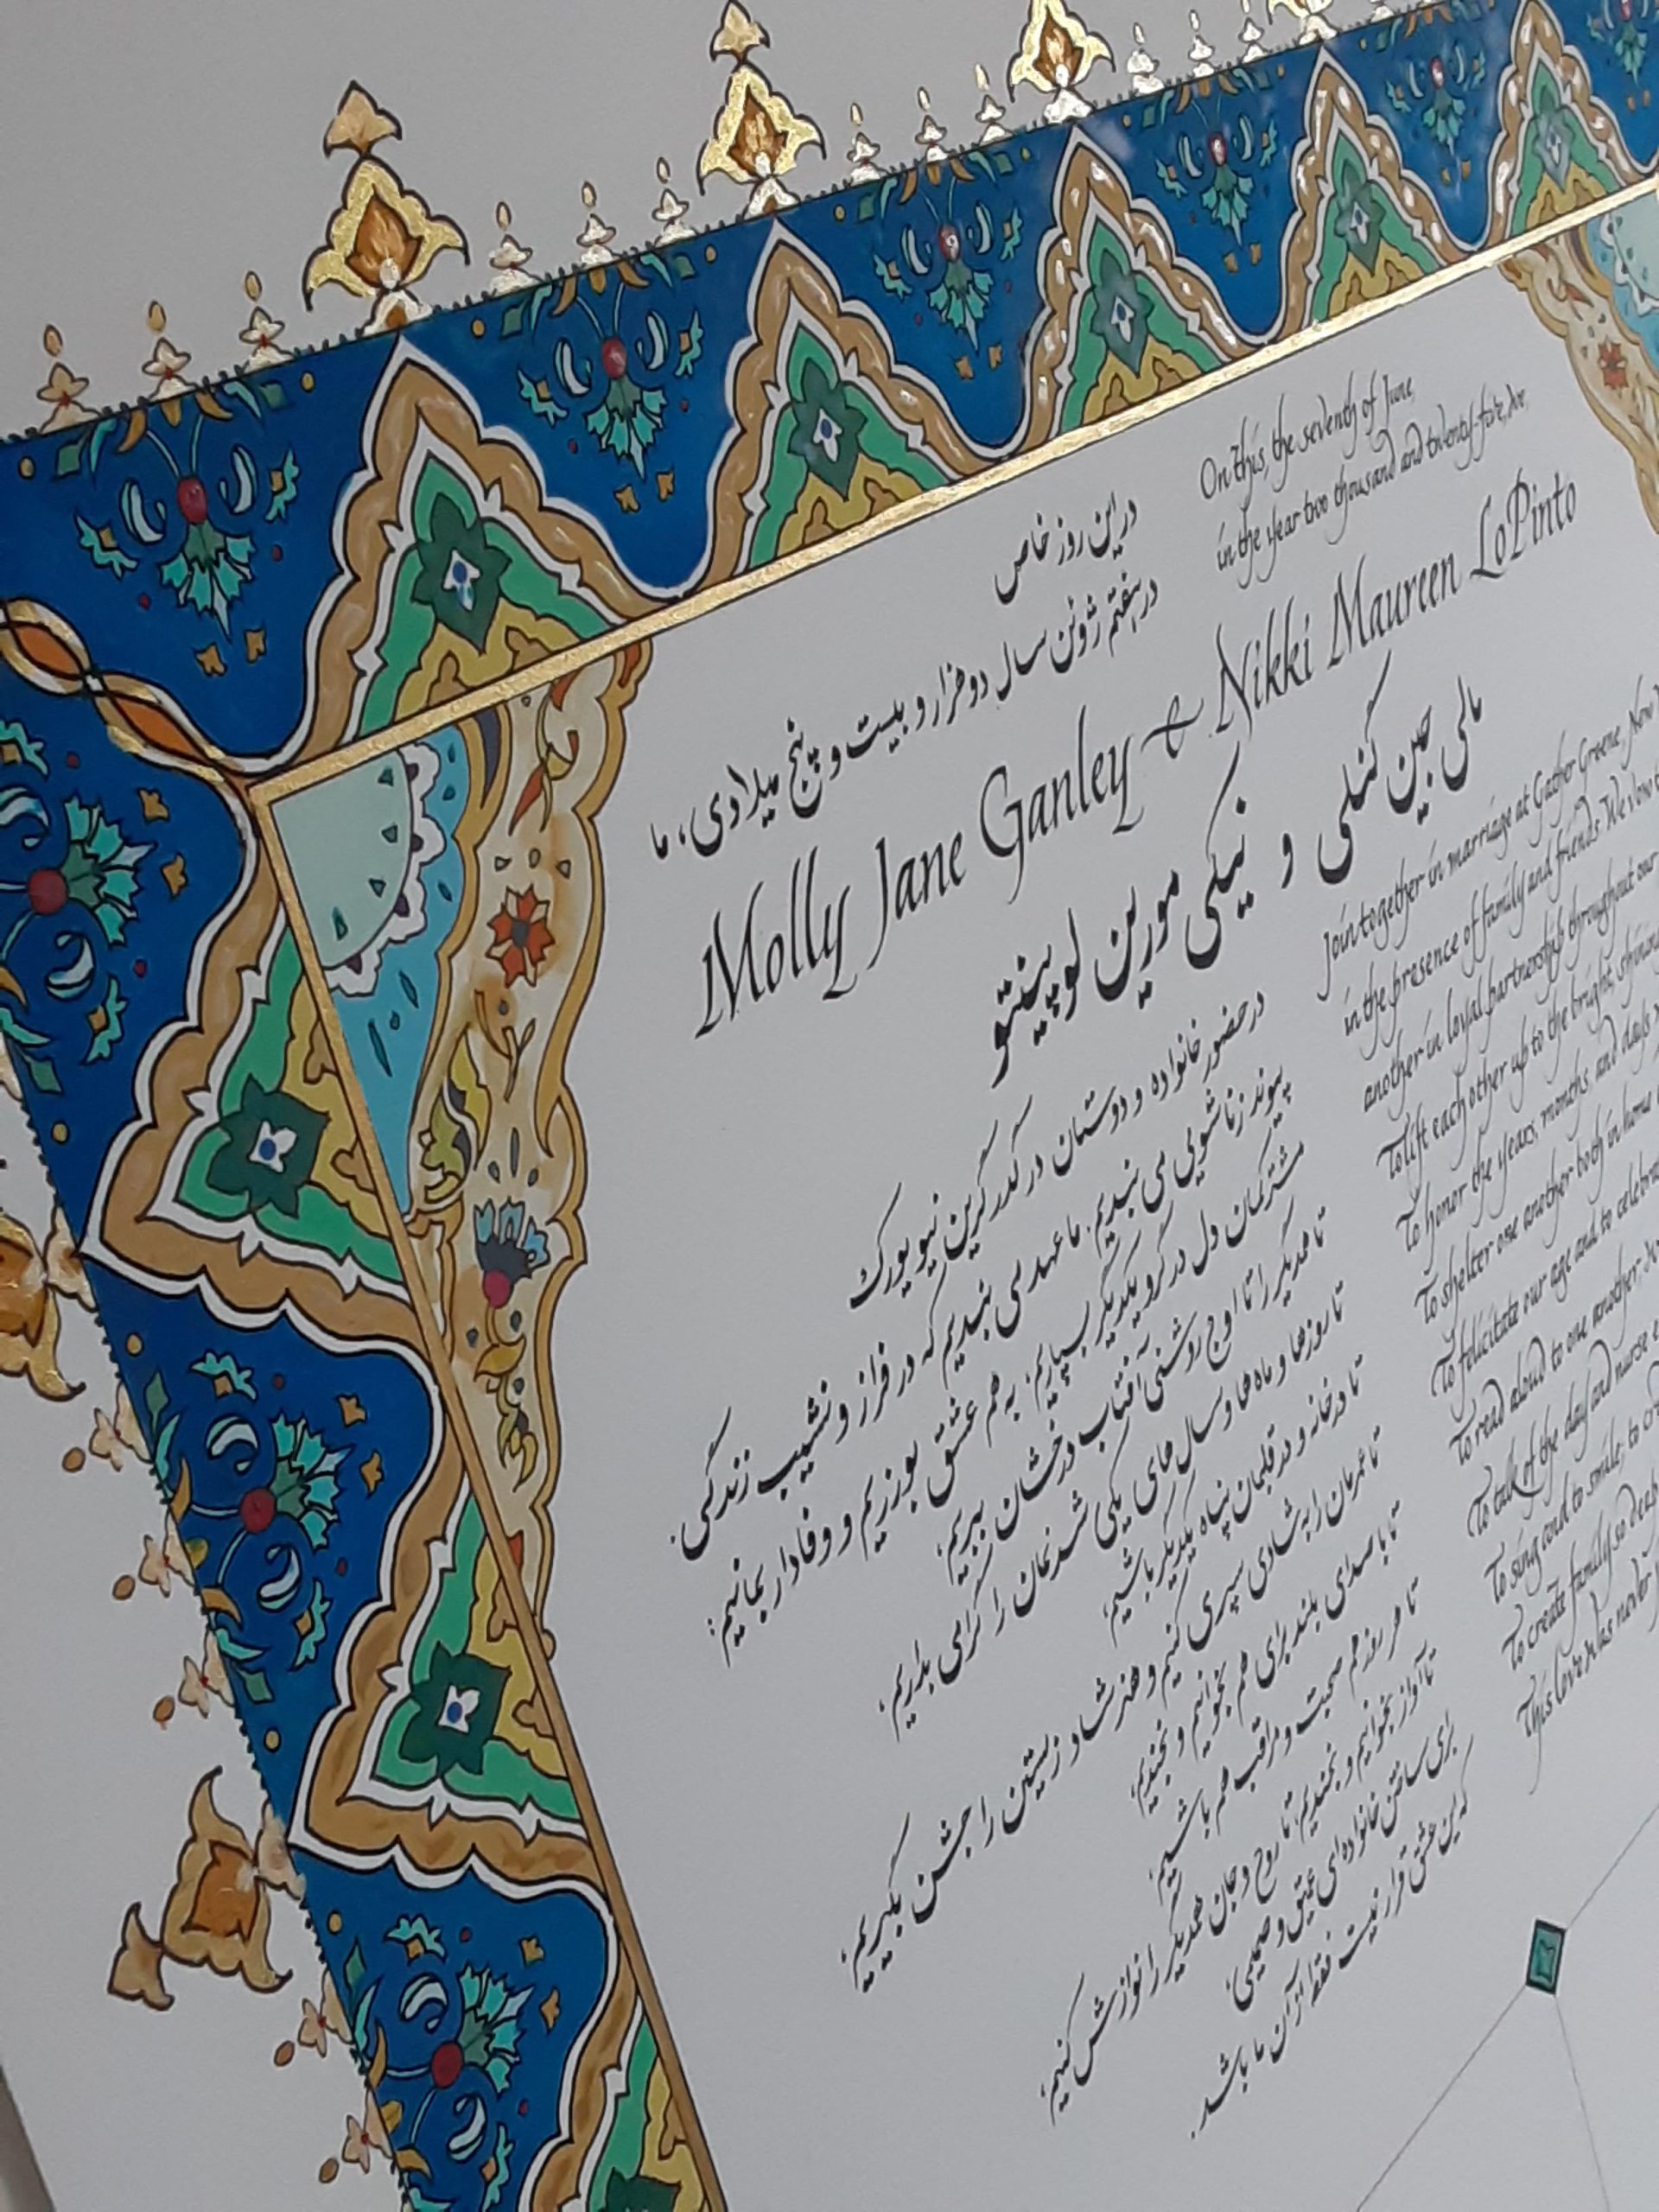 On this, the seventh of June,
in the year two thousand and twenty-five, we,
در این روز خاص
در هفتم ژوئن سال دوهزار و بیست و پنج میلادی، ما
Molly Jane Ganley & Nikki Maureen LoPinto
مالی جین گنلی و نیکی مورین لوپینتو
Join together in marriage at Gather Greene, New
in the presence of family and friends. We vow
another in loyal partnership throughout our
To lift each other up to the bright, shining
To honor the years, months, and days
To shelter one another both in home
To felicitate our age and to celebrate
To read aloud to one another,
To talk of the day and nurse
To sing and to smile; to
To create family so deep
This love was never
در حضور خانواده و دوستان در گدر گرین نیویورک
پیوند زناشویی می بندیم. ما عهد می بندیم که در فراز و نشیب زندگی
مشترکمان دل در گرو یکدیگر بسپاریم؛ به هم عشق بورزیم و وفادار بمانیم:
تا همدیگر را تا اوج روشنی آفتاب درخشان ببریم؛
تا روزها و ماه ها و سال های یکی شدنمان را گرامی بداریم،
تا در خانه و در قلبمان پناه یکدیگر باشیم؛
تا عمرمان را به شادی سپری کنیم و هنر شاد زیستن را جشن بگیریم؛
تا با صدای بلند برای هم بخوانیم و بخندیم؛
تا هر روز هم صحبت و مراقب هم باشیم؛
تا آواز بخوانیم و بخندیم؛ تا روح و جان همدیگر را نوازش کنیم؛
برای ساختن خانواده ای عمیق و صمیمی؛
که این عشق قرار نیست فقط از آن ما باشد.